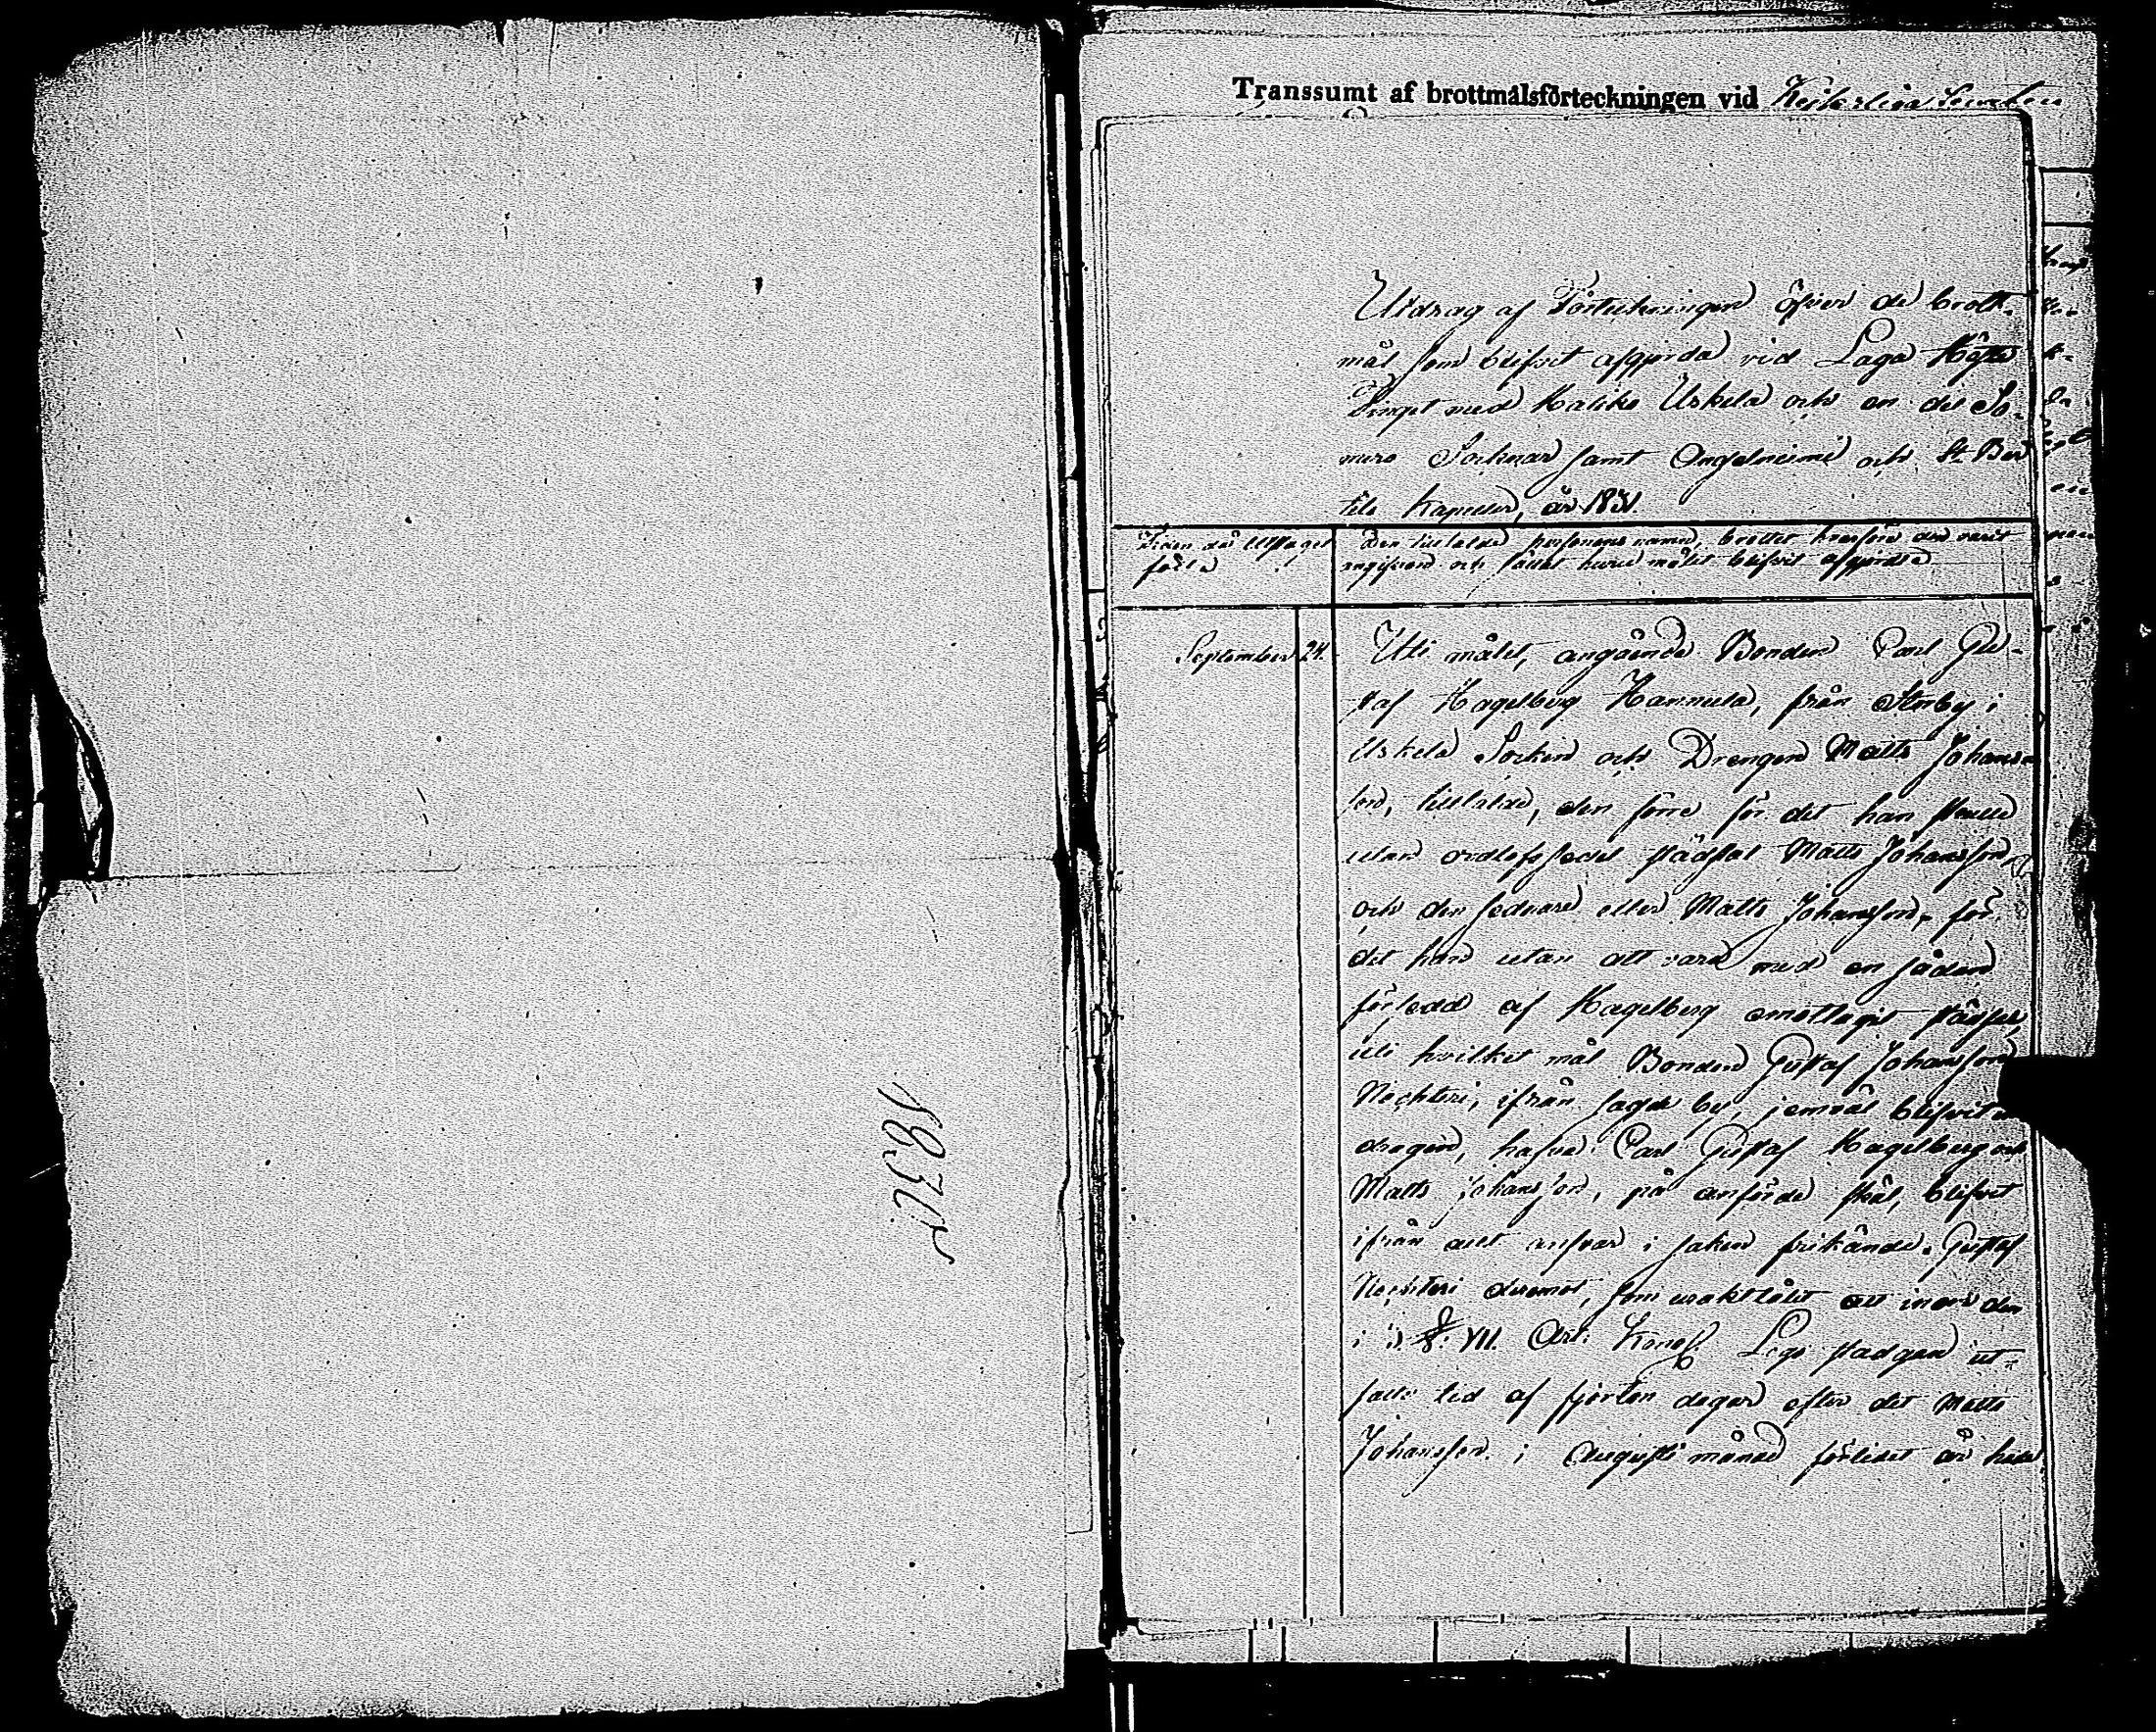 Transsumt af brottmålsförteckningen vid
Utdrag af Förteckningen öfver de brott-
mål som blifvit afgjorda vid Laga Höste
Tinget med Haliko Uskela och en del So-
mero Socknar samt Angelniemi och St. Ber
tils Kapeller, år 1831.
Tiden då Utslaget
fallit
Den tilltalde personens namn, brottet hvarföre den varit
angifven och sättet huru målet blifvit afgjordt
September 24.
Uti målet, angående Bonden Carl Gu-
staf Hagelberg Hannula, från Storby i
Uskela Socken och Drengen Matts Johans-
son, tilltalde, den förre för det han skulle
utan orlofssedel städslat Matts Johansson,
och den sednare eller Matts Johansson, för
det han utan att vara med en sådan
försedd af Hagelberg emottagit städsel,
uti hvilket mål Bonden Gustaf Johansson
Nechteri, ifrån sagde by, jemväl blifvit in
dragen, hafva Carl Gustaf Hagelberg och
Matts Johansson, på anförde skäl, blifvit
ifrån allt ansvar i saken frikände. Gustaf
Nechteri deremot, som uraktlåtit att inom den
i 3. §. VII. Art: Kongl. Lego stadgan ut-
satte tid af fjorton dagar efter det Matts
Johansson i Augusti månad förlidet år hade
1832